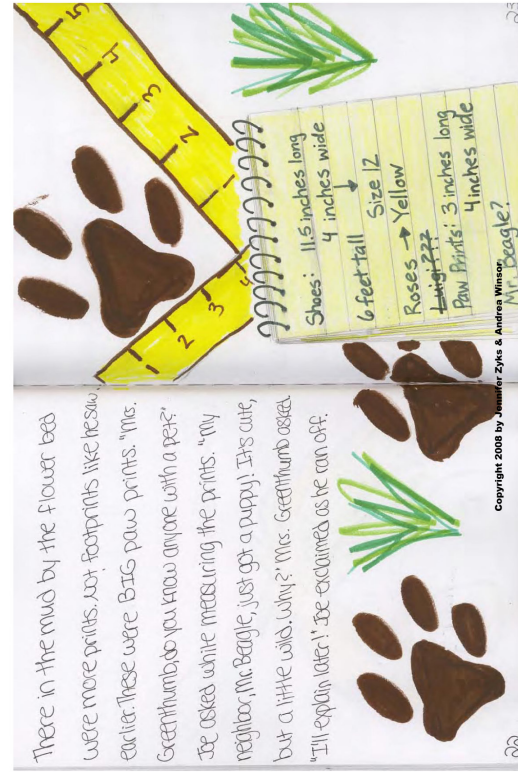 There in the mud by the flower bed
were more prints. Not footprints like he saw
earlier. These were BIG paw prints. "Mrs.
Greenthumb, do you know anyone with a pet?"
Joe asked while measuring the prints. "My
neighbor, Mr. Beagle, just got a puppy! It's cute,
but a little wild. Why?" Mrs. Greenthumb asked.
"I'll explain later!" Joe exclaimed as he ran off.
22
1
2
3
4
1
2
3
4
5
Shoes: 11.5 inches long
4 inches wide
↓
6 feet tall Size 12
Roses → Yellow
Luigi???
Paw Prints: 3 inches long
4 inches wide
Mr. Beagle?
23
Copyright 2008 by Jennifer Zyks & Andrea Winsor